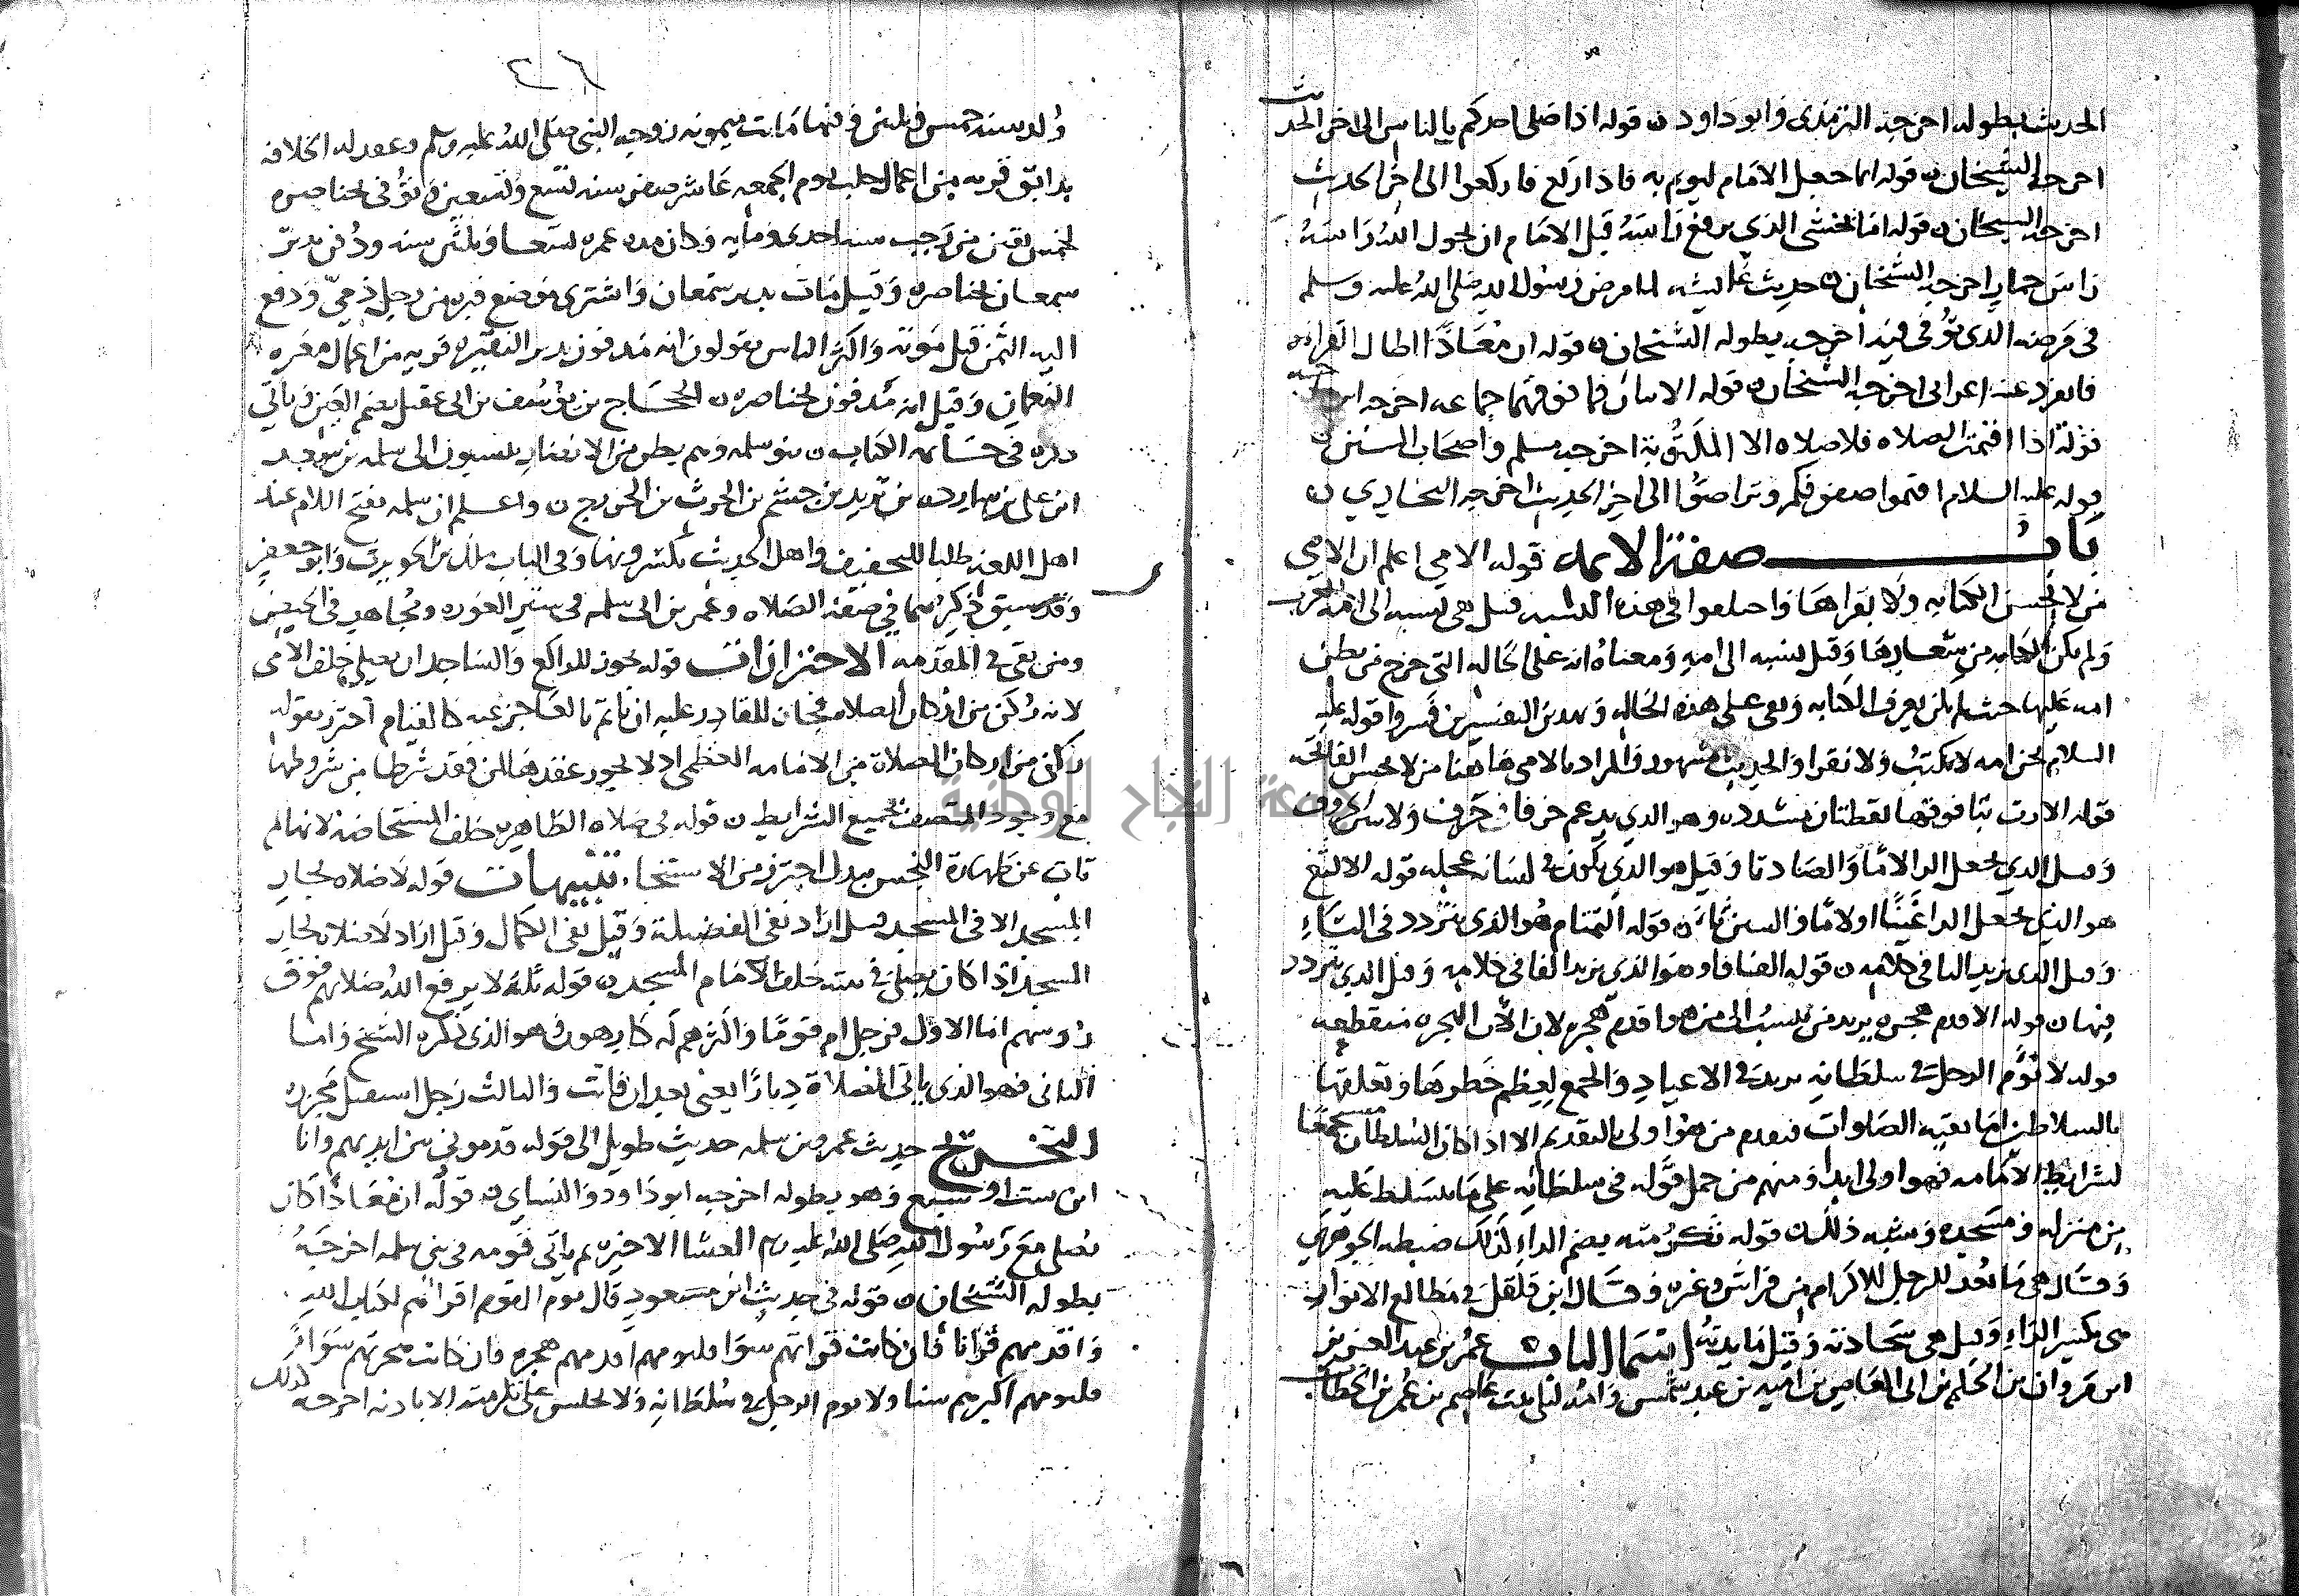 الحديث بطوله اخرجه الترمذي وابو داود ن قوله اذا صلى احدكم بالناس الى اخر الحديث
اخرجه الشيخان ن قوله انما جعل الامام ليوتم به فاذا ركع فاركعوا الى اخر الحديث
اخرجه الشيخان ن قوله اما يخشى الذي يرفع راسه قبل الامام ان يحول الله راسه
راس حمار اخرجه الشيخان ن حديث عائشة لما مرض رسول الله صلى الله عليه وسلم
في مرضه الذي توفي فيه اخرجه بطوله الشيخان ن قوله ان معاذا اطال القراءة
فانفرد عنه اعرابي اخرجه الشيخان ن قوله الاثنان فما فوقهما جماعه اخرجه ابن
قوله اذا اقيمت الصلاه فلا صلاه الا المكتوبة اخرجه مسلم واصحاب السنن ن
قوله عليه السلام اقيموا صفوفكم وتراصوا الى اخر الحديث اخرجه البخاري ن
باب صفة الائمه قوله الامي اعلم ان الامي
من لا يحسن الكتابه ولا يقراها واختلفوا في هذه النسبه فقيل هي نسبه الى امة العرب
ولم تكن الكتابه من شعارها وقيل نسبه الى امه ومعناه انه على الحاله التي خرج من بطن
امه عليها حيث لم يكن يعرف الكتابه وبقي على هذه الحاله وبهذين التفسيرين فسروا قوله عليه
السلام نحن امه لا نكتب ولا نقرا والحديث مشهور والمراد بالامي هاهنا من لا يحسن الفاتحه
قوله الارت بتا فوقها نقطتان مشدده وهو الذي يدغم حرفا في حرف ولا يبين الحروف
وقيل الذي يجعل الرا لاما والصاد تا وقيل هو الذي يكون في لسانه عجله قوله الالثغ
هو الذي يجعل الرا غينا او لاما والسين ثاء ن قوله التمتام هو الذي يتردد في التاء
وقيل الذي يزيد التا في كلامه ن قوله الفافا وهو الذي يزيد الفا في كلامه وقيل الذي يتردد
فيها ن قوله الاقدم هجره يريد من ينسب الى من هو اقدم هجره لان الان الهجره منقطعه
قوله لا يؤم الرجل في سلطانه يريد في الاعياد والجمع لعظم خطرها وتعلقها
بالسلاطين اما بقية الصلوات فيقدم من هو اولى بالتقديم الا اذا كان السلطان مجمعا
لشرايط الامامه فهو اولى ابدا ومنهم من حمل قوله في سلطانه على ما يتسلط عليه
من منزله ومسجده وشبه ذلك ن قوله تكرمته بضم الراء كذلك ضبطه الجوهري
وقال هي ما يعد للرجل للاكرام من فراش وغيره وقال ابن قرقل في مطالع الانوار
هي بكسر الراء وقيل هي سجادته وقيل مايدته اسما الباب عمر بن عبد العزيز
ابن مروان بن الحكم بن ابي العاص بن اميه بن عبد شمس وامه ليلى بنت عاصم بن عمر بن الخطاب
٤٦
ولد سنه خمس وثلثين وفيها ماتت ميمونه زوجه النبي صلى الله عليه وسلم وعقد له الخلافه
بدابق قريه من اعمال حلب يوم الجمعه عاشر صفر سنه تسع وتسعين وتوفي بخناصره
لخمس بقين من رجب سنه احدى ومايه وكان مدة عمره تسعا وثلثين سنه ودفن بدير
سمعان بخناصره وقيل مات بدير سمعان واشترى موضع قبره من رجل ذمي ودفع
اليه الثمن قبل موته واكثر الناس يقولون انه مدفون بدير النقيره قريه من اعمال معره
النعمان وقيل انه مدفون بخناصره ن الحجاج بن يوسف بن ابي عقيل بضم العين ياتي
ذكره في حساب الكتاب ن بنو سلمه وهم بطن من الانصار ينسبون الى سلمه بن سعد
ابن علي بن سارده بن تزيد بن جشم بن الحرث بن الخزرج ن واعلم ان سلمه بفتح اللام عند
اهل اللغه طلبا للتخفيف واهل الحديث بكسرونها وفي الباب ملك بن الحويرث وابو جعفر
وقد سبق ذكرهما في صفة الصلاه وعمر بن ابي سلمه في ستر العوره ومجاهد في الحيض
ومن بقي في المقدمه الاحترازات قوله يجوز للراكع والساجد ان يصلي خلف الامي
لانه ركن من اركان الصلاه فجاز للقادر عليه ان ياتم بالعاجز عنه كالقيام احترز بقوله
ركن من اركان الصلاة من الامامه العظمى اذ لا يجوز عقدها لمن فقد شرطا من شروطها
مع وجود المتصف بجميع الشرايط ن قوله في صلاه الطاهر خلف المستحاضة لانها لم
تات عن طهارة النجس ببدل احترز من الاستنجاء تنبيهات قوله لا صلاه لجار
المسجد الا في المسجد قيل اراد نفي الفضيلة وقيل نفي الكمال وقيل اراد لا صلاه لجار
المسجد اذا كان يصلي في بيته خلف الامام المسجد ن قوله ثلثة لا يرفع الله صلاتهم فوق
رؤسهم اما الاول فرجل ام قوما واكثرهم له كارهون هو الذي ذكره الشيخ واما
الثاني فهو الذي ياتي الصلاة دبارا يعني بعد ان فاتت والثالث رجل استعبد محرره
التخريج حديث عمرو بن سلمه حديث طويل الى قوله قدموني بين ايديهم وانا
ابن ست او سبع وهو بطوله اخرجه ابو داود والنساي ن قوله ان معاذا كان
يصلي مع رسول الله صلى الله عليه وسلم العشا الاخيره ثم ياتي قومه في بني سلمه اخرجه
بطوله الشيخان ن قوله في حديث ابن مسعود قال يوم القوم اقراهم لكتاب الله
واقدمهم قرانا فان كانت قراتهم سوا فليومهم اقدمهم هجره فان كانت هجرتهم سوا
فليومهم اكبرهم سنا ولا يوم الرجل في سلطانه ولا يجلس على تكرمته الا باذنه اخرجه كذلك
جامعة النجاح الوطنية